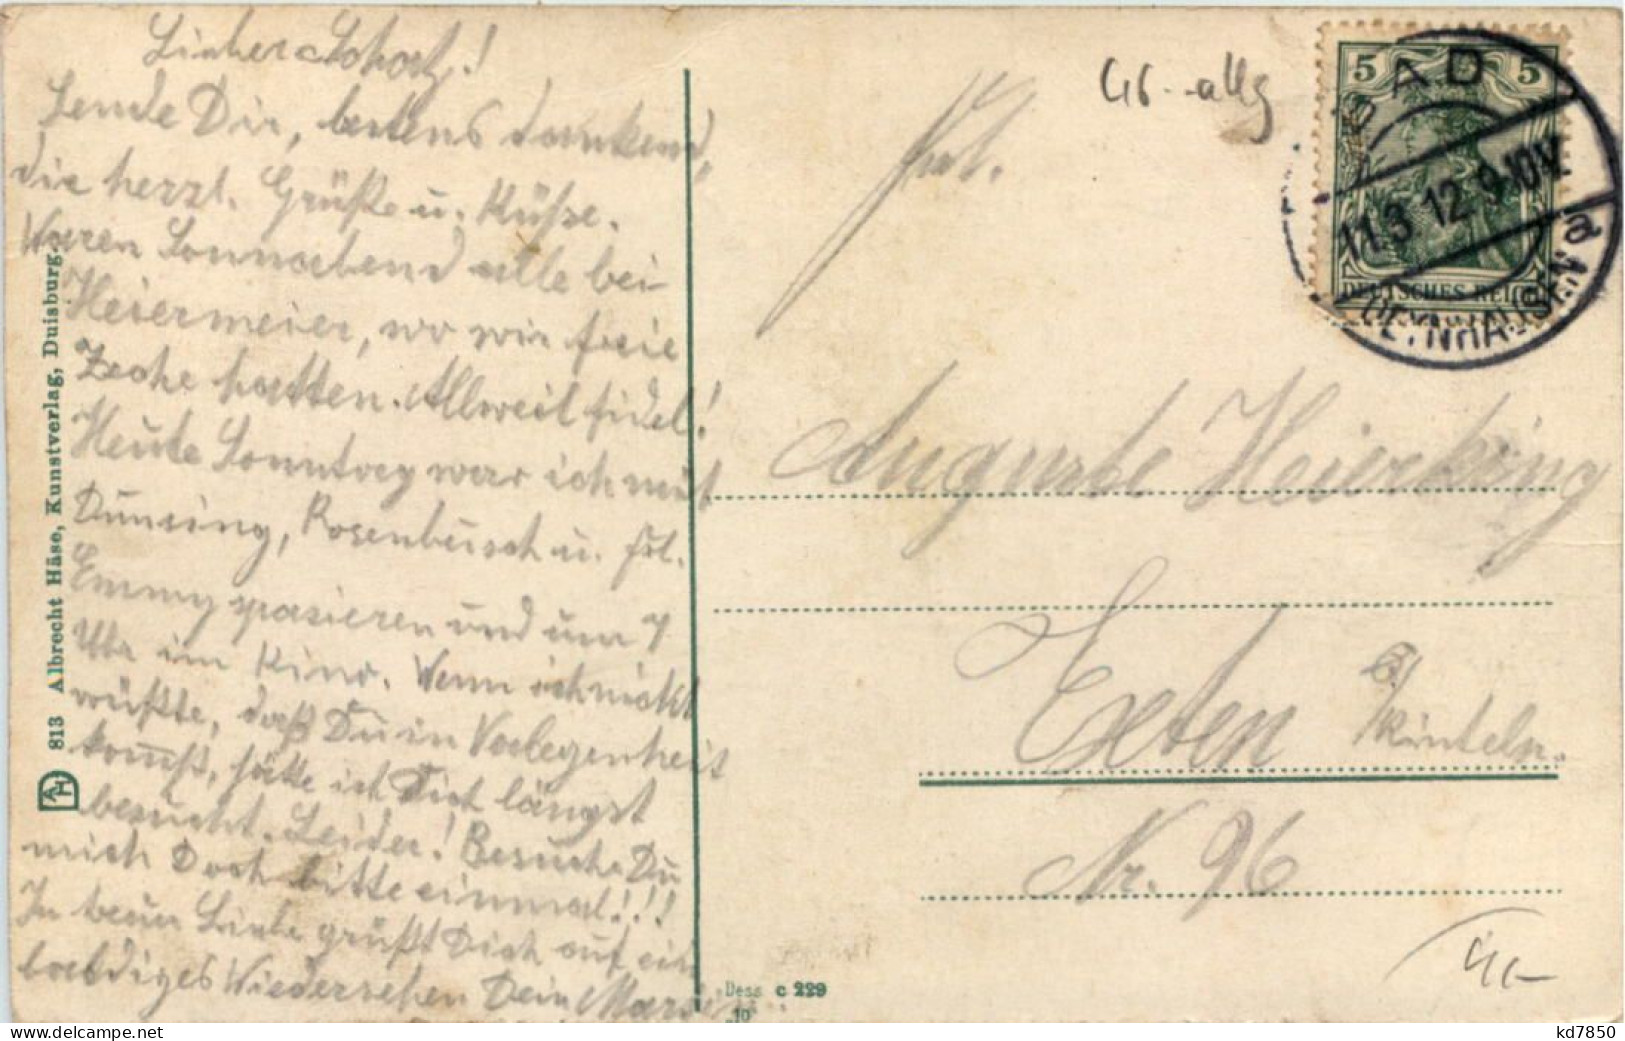 Lieber Schatz!
Sende Dir, bestens dankend,
die herzl. Grüße u. Küsse.
Waren Sonnabend alle bei
Heiermeier, wo wir freie
Zeche hatten. Allweil fidel!
Heute Sonntag war ich mit
Dünsing, Rosenbusch u. Frl.
Emmy spasieren und um 7
Uhr im Kino. Wenn ich nicht
wüßte, daß Du in Verlegenheit
kom̅st, hätte ich Dich längst
besucht. Leider! Besuche Du
mich Doch bitte einmal!!!
In treuer Liebe grüßt Dich auf ein
baldiges Wiedersehen Dein
813 Albrecht Häse, Kunstverlag, Duisburg.
AH
Dess c 229
10
Frl.
Auguste Heierking
Exten b/Rinteln.
Nr. 96
5 5
DEUTSCHES REICH
BAD OEYNHAUSEN a
11.3.12.9-10V.
kd7850